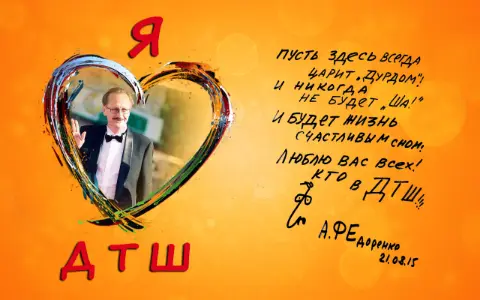 Я
ДТШ
ПУСТЬ ЗДЕСЬ ВСЕГДА
ЦАРИТ „ДУРДОМ"!
И НИКОГДА
НЕ БУДЕТ „ША!"
И БУДЕТ ЖИЗНЬ
СЧАСТЛИВЫМ СНОМ,
ЛЮБЛЮ ВАС ВСЕХ!
КТО В ДТШ!!!
А.ФЕдоренко
21.08.15